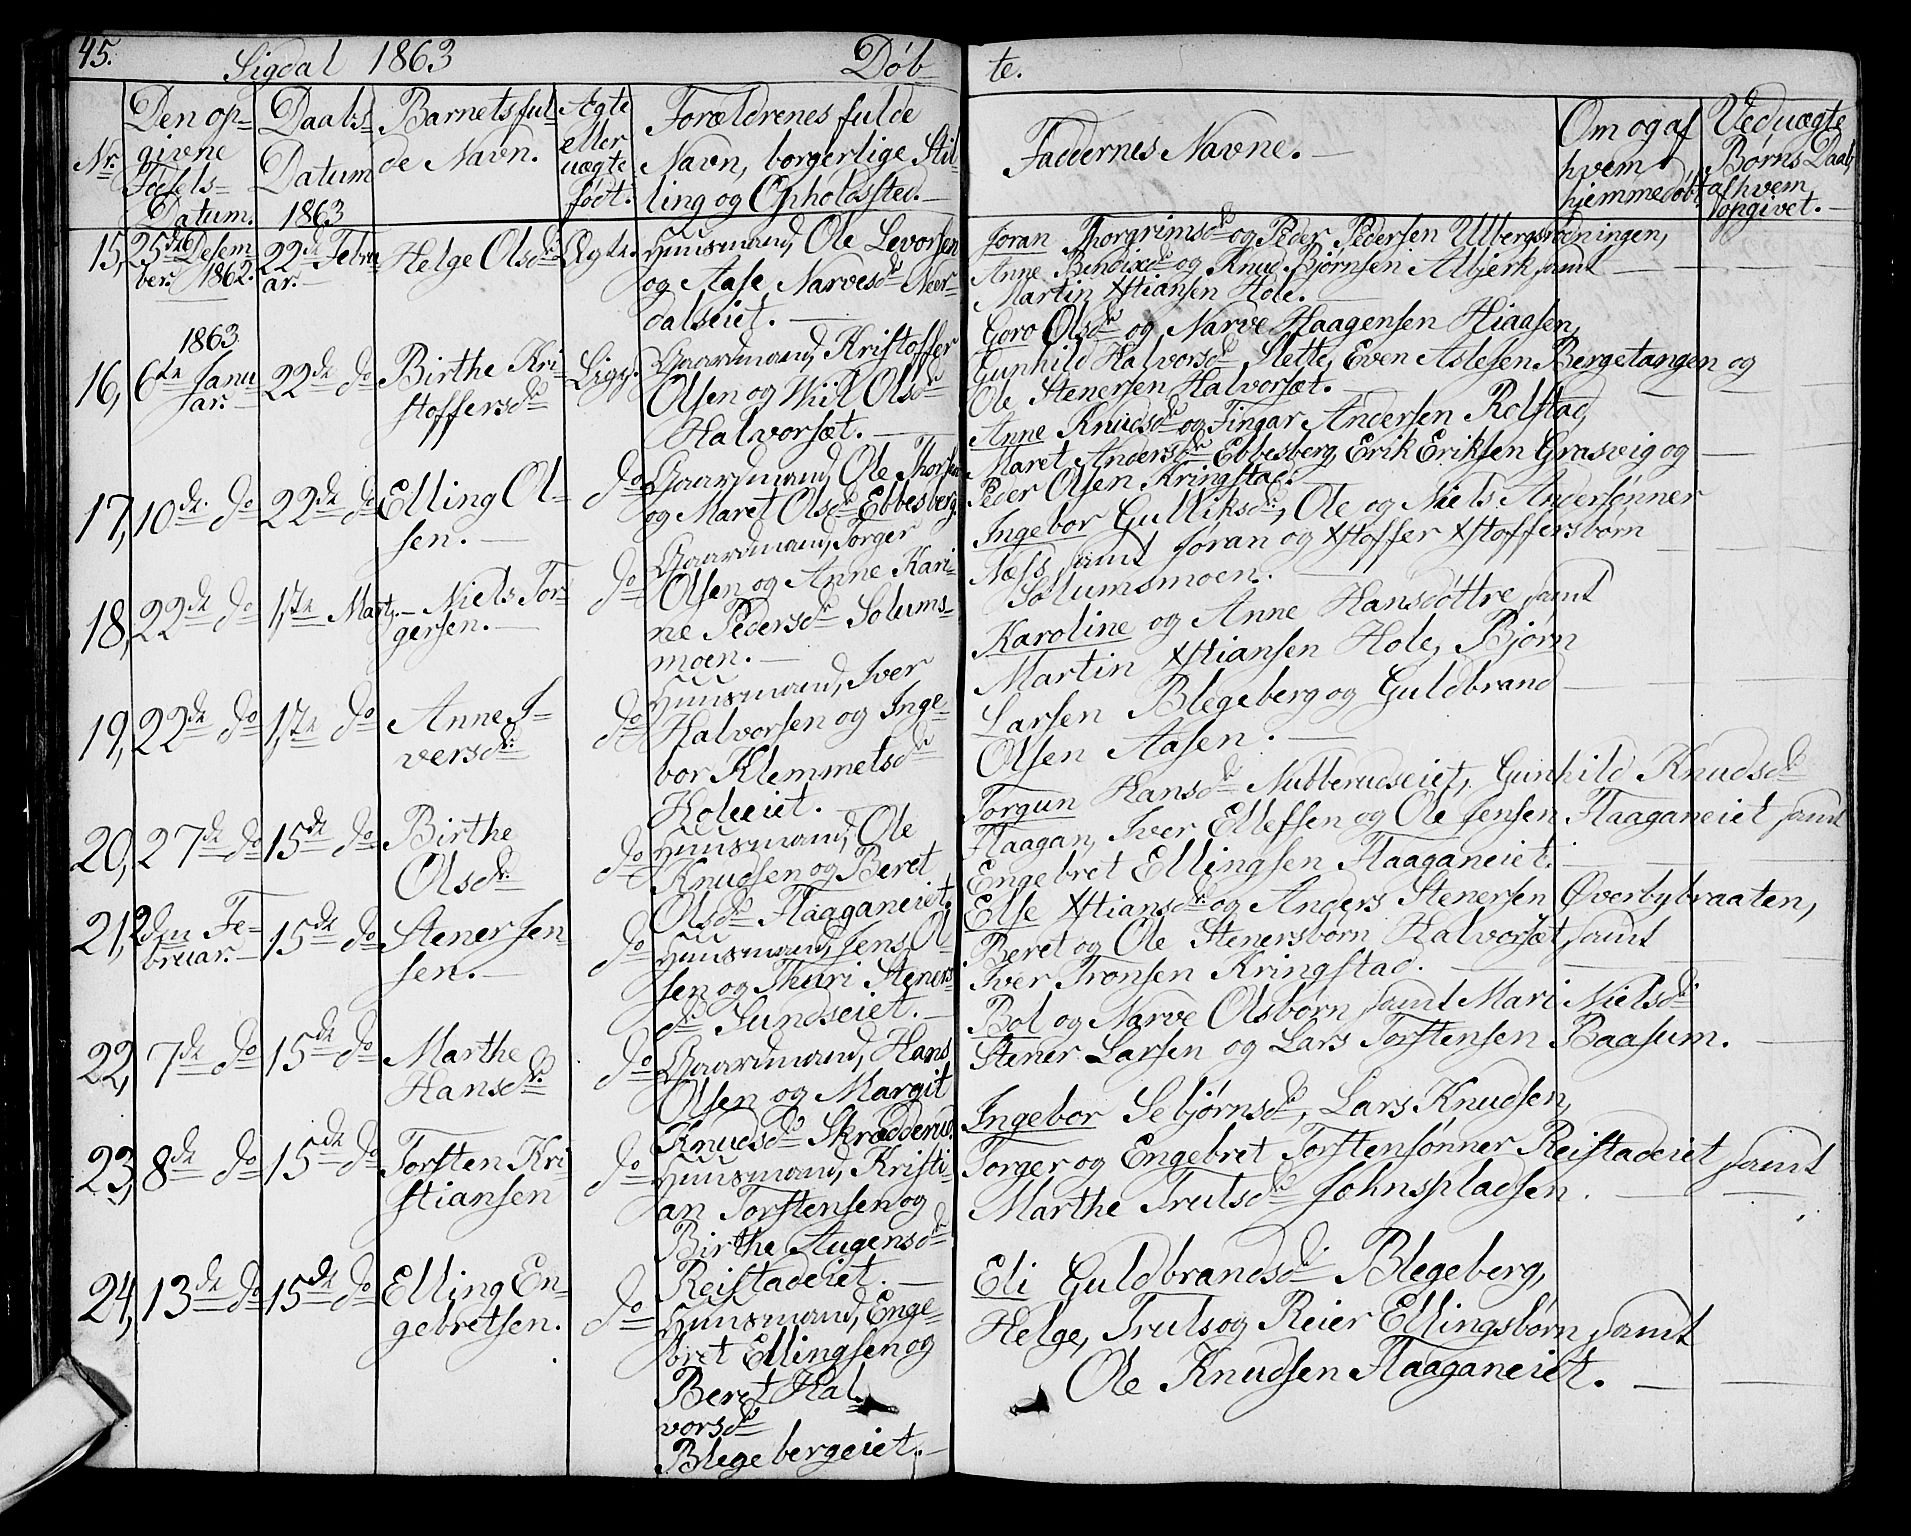 45.
Sigdal 1863
Døb
te.
Nr.
Den op-
givne
Fødsels-
Datum.
Daabs
Datum
1863
Barnets ful-
de Navn.
Ægte
eller
uægte
født.
Forældrenes fulde
Navn, borgerlige Stil
ling og Opholdssted.
Faddernes Navne. —
Om og af
hvem
hjemmedøbt
Ved uægte
Børns Daab,
af hvem
opgivet. —
15,
25de Desem
ber. 1862.
22de Febru
ar. —
Helge Olsdr.
Ægte.
Huusmand, Ole Levorsen
og Aase Narvesdr Neer-
dalseiet. —
Joran Thorgrimsdr og Peder Pedersen Ulbergsrødningen,
Anne Bendixdr og Knud Bjørnsen Albjerk samt
Martin Xstiansen Hole. —
1863
16,
6te Janu
ar. —
22de do
Birthe Kri-
stoffersdr
Ligs.
Gaardmand, Kristoffer
Olsen og Olsdr
Halvorsæt. —
Goro Olsdr og Narve Haagensen Hiaasen,
Gunhild Halvorsdr Slette, Even Aslesen Bergetangen og
Ole Stenersen Halvorsæt. —
17,
10de do
22de do
Elling Ol-
sen. —
do
Gaardmand, Ole Thorsen
og Maret Olsdr Ebbesberg.
Anne Knudsdr og Fingar Andersen Rolstad,
Maret Andersdr Ebbesberg, Erik Eriksen Grasveig og
Peder Olsen Kringstad.
18,
22de do
1ste Marts. —
Niels Tor-
gersen. —
do
Gaardmand, Torger
Olsen og Anne Kari-
ne Pedersdr Solums-
moen. —
Ingebor Gulliksdr, Ole og Niels Andersønner
Næss samt Joran og Xstoffer Xstoffersborn
Solumsmoen.
19,
22de do
1ste do
Anne I-
versdr.
do
Huusmand, Iver
Halvorsen og Inge-
bor Klemmetsdr
Holeeiet. —
Karoline og Anne Hansdøttre samt
Martin Xstiansen Hole, Bjørn
Larsen Blegeberg og Guldbrand
Olsen Aasen. —
20,
27de do
15de do
Birthe
Olsdr.
do
Huusmand, Ole
Knudsen og Beret
Olsdr Flaaganeiet.
Torgun Hansdr Nubberudseiet, Gunhild Knudsdr
Flaagan, Iver Ellefsen og Ole Jensen Flaaganeiet samt
Engebret Ellingsen Flaaganeiet.
21,
2den Fe-
bruar. —
15de do
Stener Jen-
sen. —
do
Huusmand, Jens Ol-
sen og Thuri Steners-
dr. Sundseiet. —
Else Xstiansdr. og Anders Stenersen Øverbybraaten,
Beret og Ole Stenersborn Halvorsæt samt
Iver Tronsen Kringstad. —
22,
7de do
15de do
Marthe
Hansdr.
do
Gaardmand, Hans
Olsen og Margit
Knudsdr Skredderud.
Bol og Narve Olsborn samt Mari Nielsdr
Stener Larsen og Lars Torstensen Baasum. —
23,
8de do
15de do
Torsten Kri
stiansen
do
Huusmand, Kristi-
an Torstensen og
Birthe Augensdr
Reistadeiet. —
Ingebor Sebjørnsdr, Lars Knudsen,
Torger og Engebret Torstensønner Reistadeiet samt
Marthe Trulsdr Johnspladsen. —
24,
13de do
15de do
Elling En-
gebretsen.
do
Huusmand, Enge-
bret Ellingsen og
Beret Hal-
vorsdr
Blegebergeiet. —
Eli Guldbrandsdr Blegeberg,
Helge, Truls og Reier Ellingsbørn samt
Ole Knudsen Flaaganeiet. —